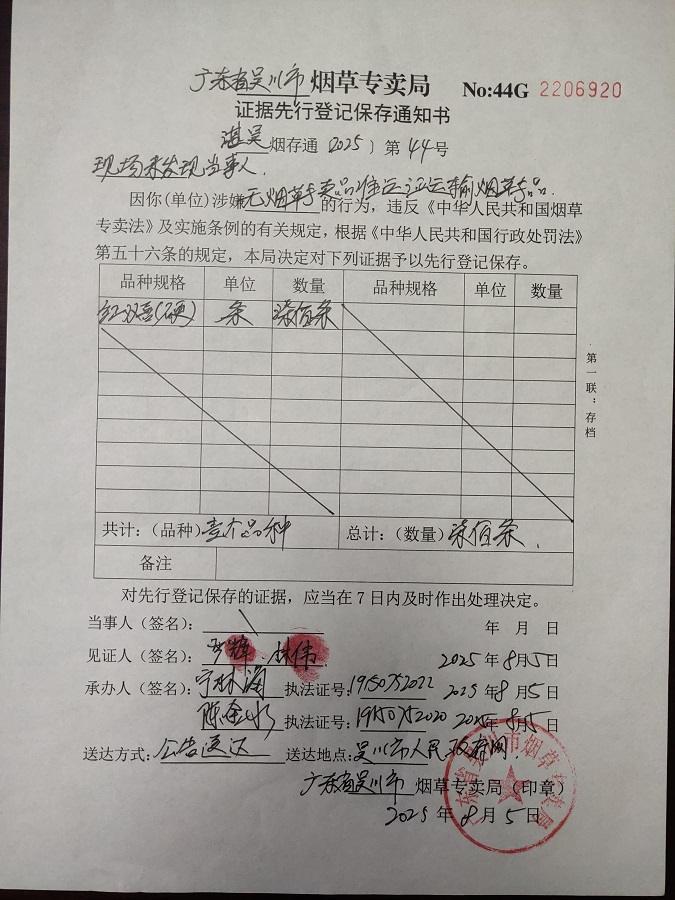 广东省吴川市烟草专卖局 No:44G 2206920
证据先行登记保存通知书
湛吴烟存通 2025 〕第 44 号
现场未发现当事人.
因你(单位)涉嫌无烟草专卖品准运证运输烟草专卖品.的行为，违反《中华人民共和国烟草
专卖法》及实施条例的有关规定，根据《中华人民共和国行政处罚法》
第五十六条的规定，本局决定对下列证据予以先行登记保存。
品种规格 单位 数量 品种规格 单位 数量
红双喜(硬) 条 柒佰条
第一联：存档
共计：（品种）壹个品种 总计：（数量）柒佰条.
备注
对先行登记保存的证据，应当在7日内及时作出处理决定。
当事人（签名）： 年 月 日
见证人（签名）： 辉. 林伟 2025年8月5日
承办人（签名）： 海 执法证号：19150752022 2025年8月5日
陈 执法证号：19150752020 2025年8月5日
送达方式：公告送达 送达地点：吴川市人民政府网.
广东省吴川市 烟草专卖局（印章）
2025年8月5日
广东省吴川市烟草专卖局